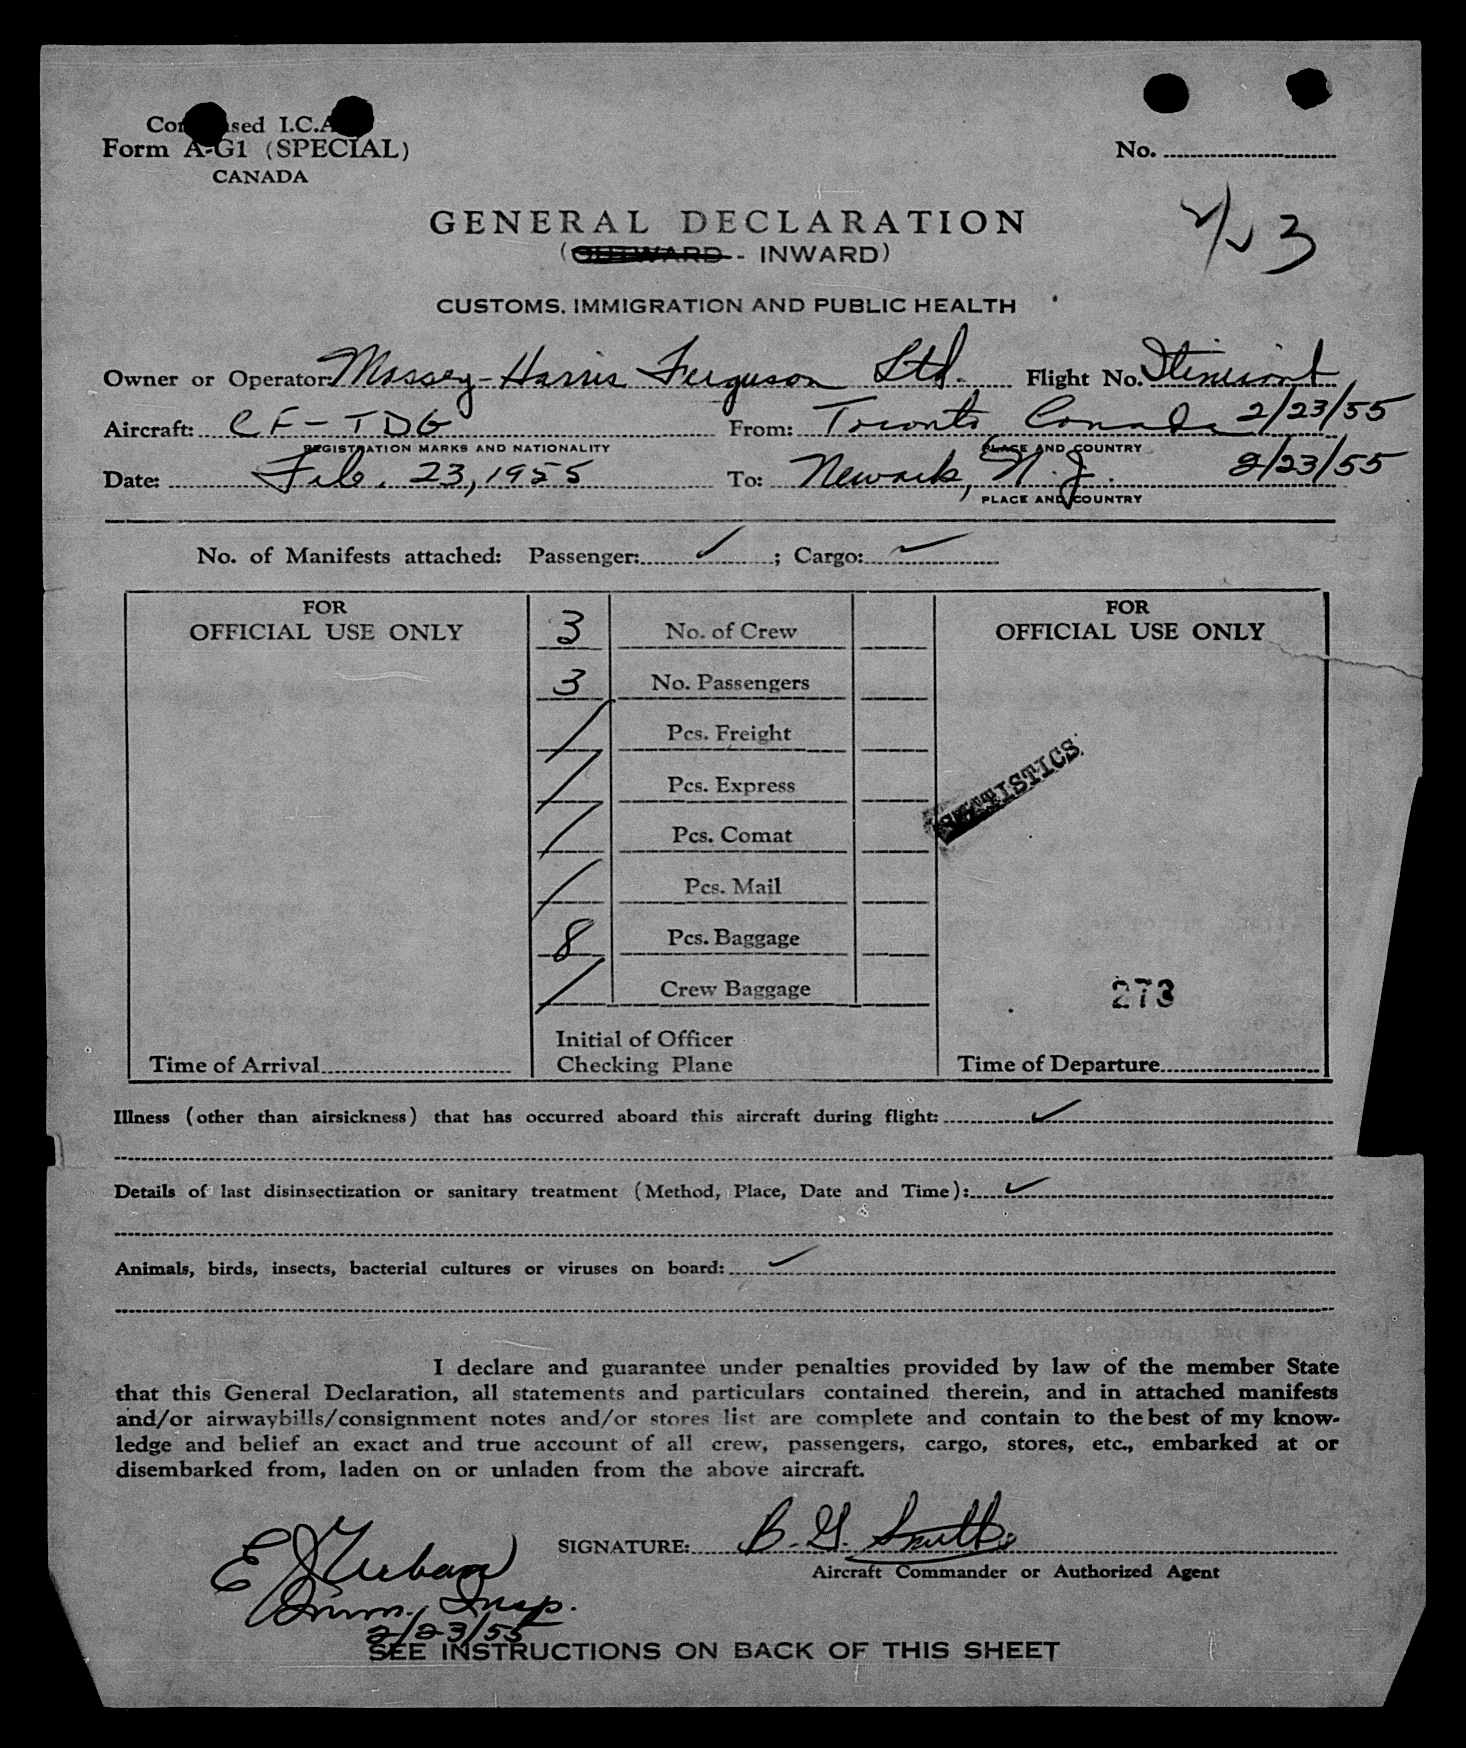 Form A-G1 (SPECIAL)
CANADA
No.
GENERAL DECLARATION
(OUTWARD - INWARD)
CUSTOMS, IMMIGRATION AND PUBLIC HEALTH
Owner or Operator: Massey-Harris Ferguson Ltd. Flight No. Itinerant
Aircraft: CF-TDG From: Toronto Canada 2/23/55
REGISTRATION MARKS AND NATIONALITY PLACE AND COUNTRY
Date: Feb. 23, 1955 To: Newark, N.J. 2/23/55
PLACE AND COUNTRY
No. of Manifests attached: Passenger: ✓; Cargo: ✓
FOR
OFFICIAL USE ONLY
3 No. of Crew
3 No. Passengers
/ Pcs. Freight
/ Pcs. Express
/ Pcs. Comat
/ Pcs. Mail
8 Pcs. Baggage
/ Crew Baggage
Time of Arrival
Initial of Officer
Checking Plane
FOR
OFFICIAL USE ONLY
STATISTICS
273
Time of Departure
Illness (other than airsickness) that has occurred aboard this aircraft during flight: ✓
Details of last disinsectization or sanitary treatment (Method, Place, Date and Time): ✓
Animals, birds, insects, bacterial cultures or viruses on board: ✓
I declare and guarantee under penalties provided by law of the member State
that this General Declaration, all statements and particulars contained therein, and in attached manifests
and/or airwaybills/consignment notes and/or stores list are complete and contain to the best of my know-
ledge and belief an exact and true account of all crew, passengers, cargo, stores, etc., embarked at or
disembarked from, laden on or unladen from the above aircraft.
SIGNATURE: B. G. Smith
Aircraft Commander or Authorized Agent
Imm. Insp.
2/23/55
SEE INSTRUCTIONS ON BACK OF THIS SHEET